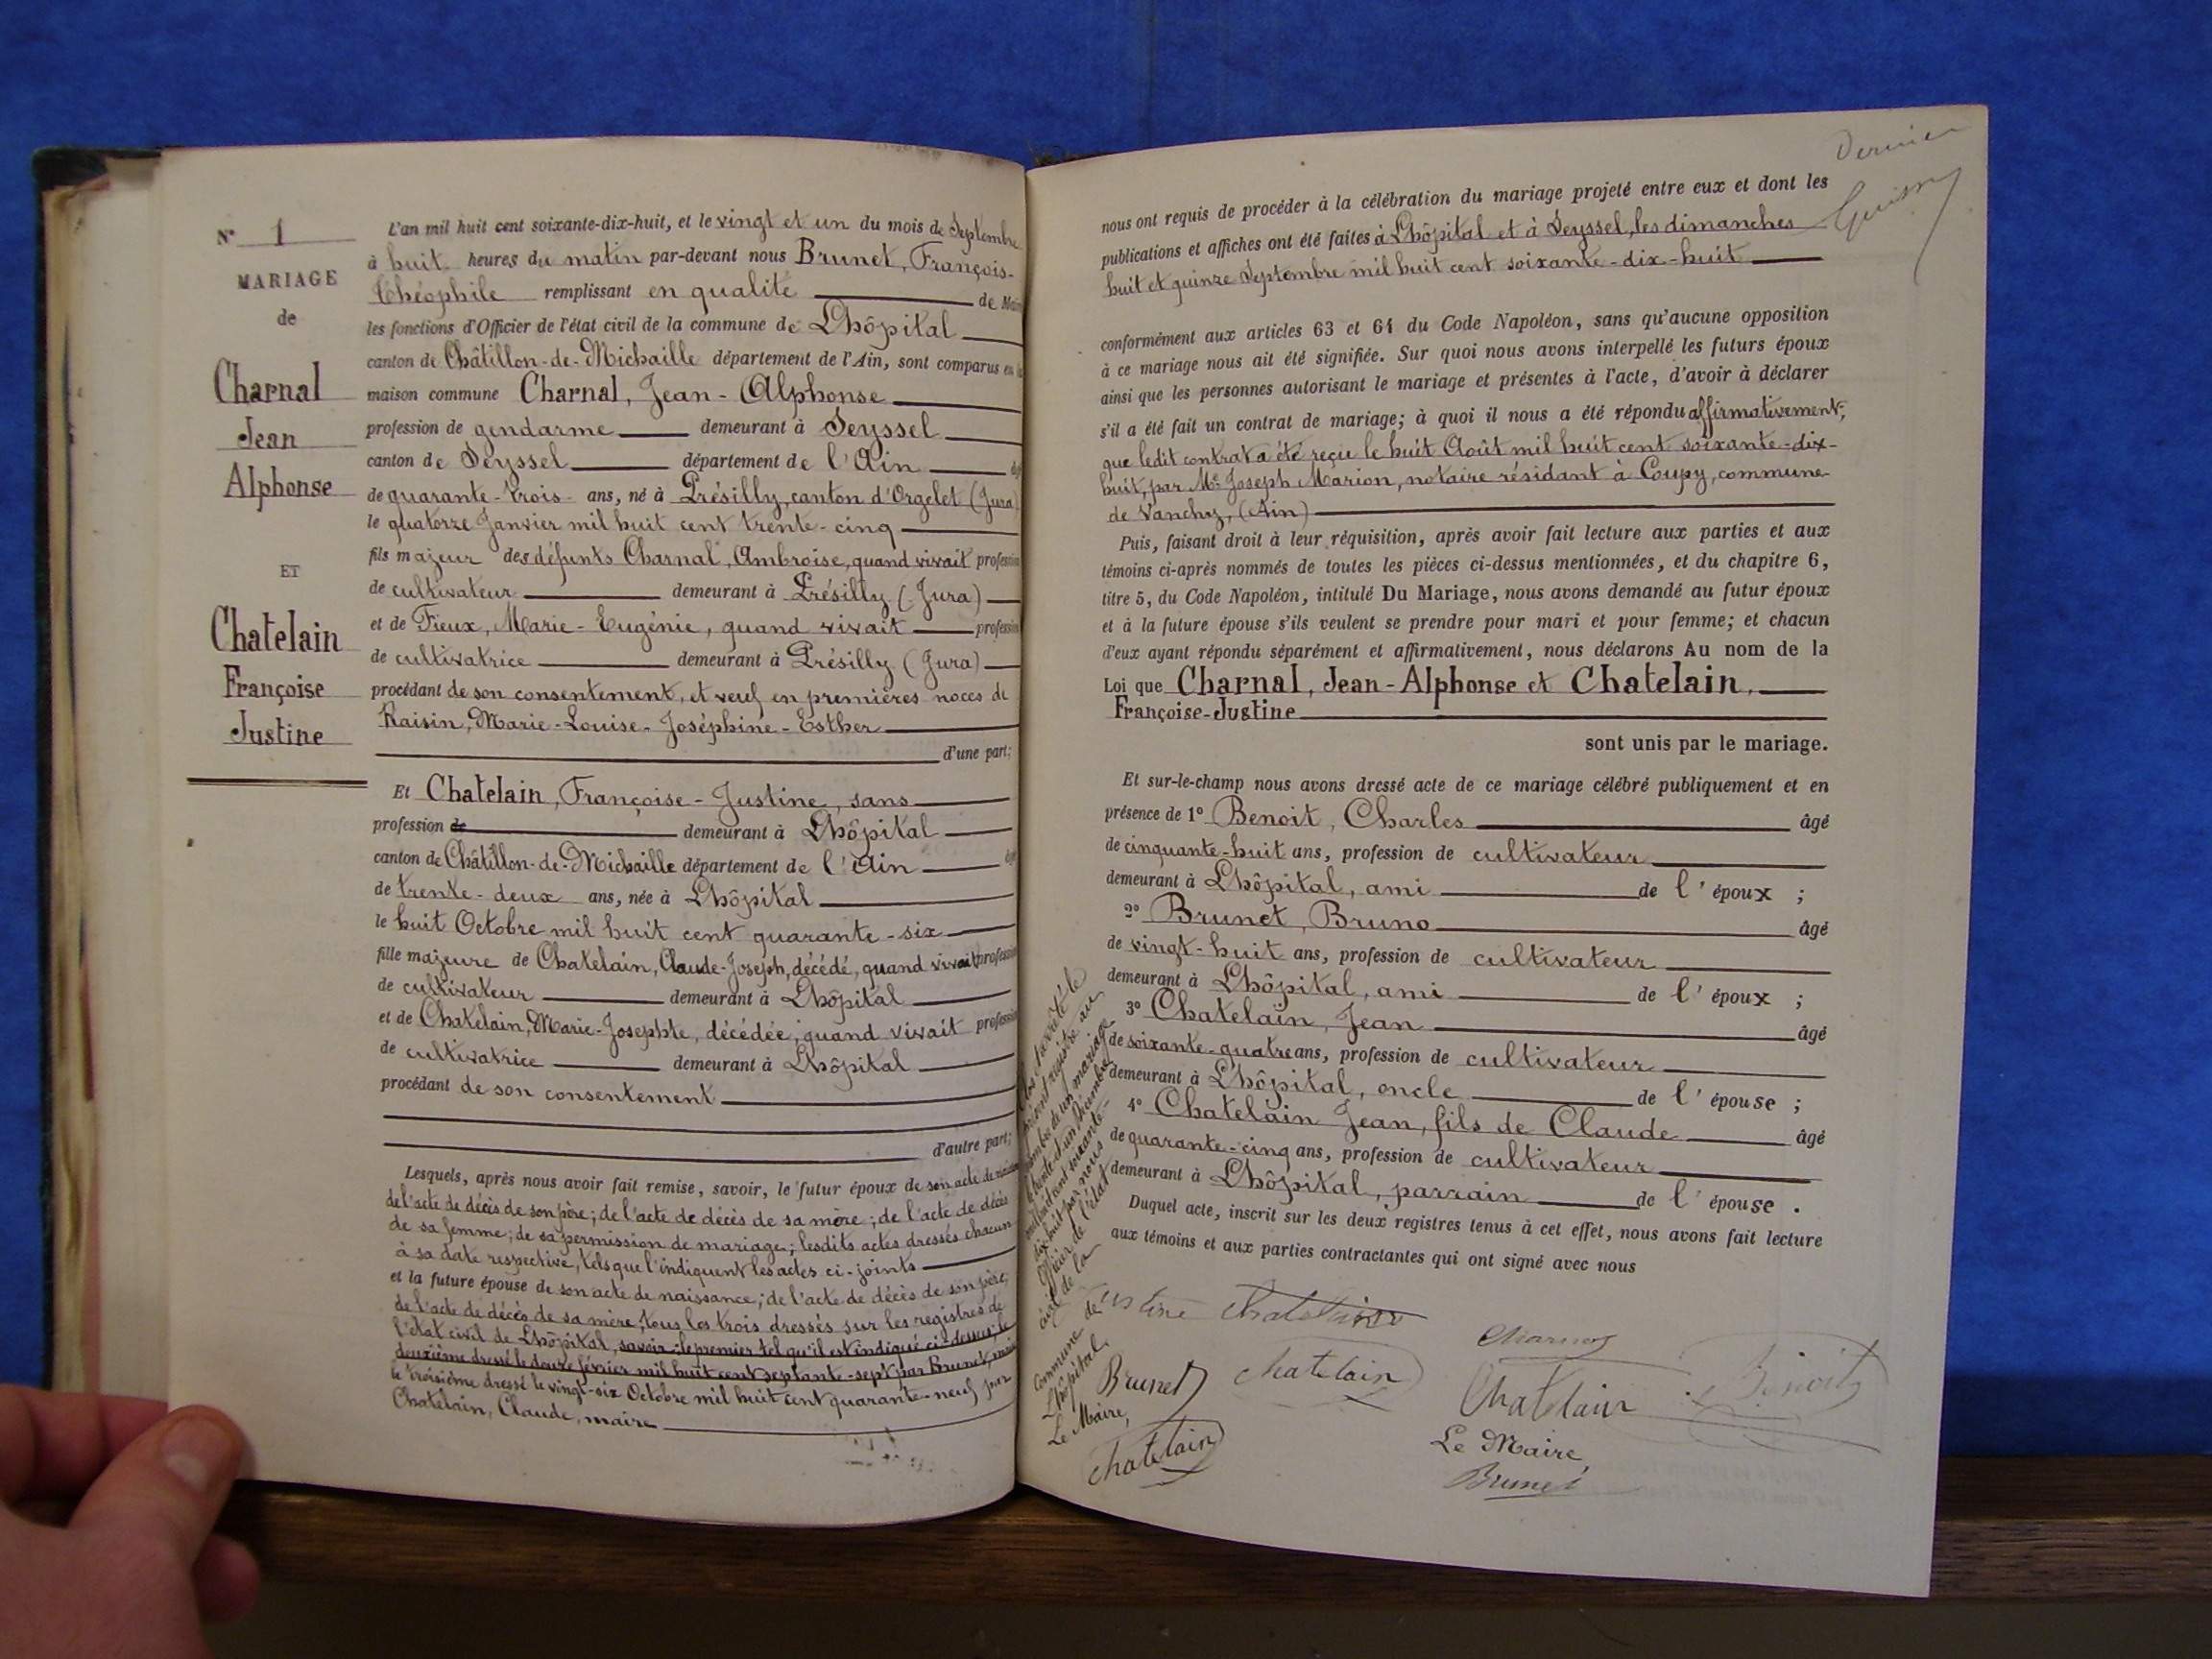 N° 1
MARIAGE
de
Charnal
Jean
Alphonse
ET
Chatelain
Françoise
Justine
L'an mil huit cent soixante-dix-huit, et le vingt et un du mois de Septembre
à huit heures du matin par-devant nous Brunet, François-
Théophile remplissant en qualité de Maire
les fonctions d'Officier de l'état civil de la commune de Lhôpital
canton de Châtillon-de-Michaille département de l'Ain, sont comparus en la
maison commune Charnal, Jean-Alphonse
profession de gendarme demeurant à Seyssel
canton de Seyssel département de l'Ain âgé
de quarante-trois ans, né à Présilly, canton d'Orgelet (Jura)
le quatorze Janvier mil huit cent trente-cinq
fils majeur des défunts Charnal, Ambroise, quand vivait profession
de cultivateur demeurant à Présilly (Jura)
et de Fieux, Marie-Eugénie, quand vivait profession
de cultivatrice demeurant à Présilly (Jura)
procédant de son consentement, et veuf en premières noces de
Raisin, Marie-Louise-Joséphine-Esther
d'une part;
Et Chatelain, Françoise-Justine, sans
profession de demeurant à Lhôpital
canton de Châtillon-de-Michaille département de l'Ain âgé
de trente-deux ans, née à Lhôpital
le huit Octobre mil huit cent quarante-six
fille majeure de Chatelain, Claude-Joseph, décédé, quand vivait profession
de cultivateur demeurant à Lhôpital
et de Chatelain, Marie-Josephte, décédée, quand vivait profession
de cultivatrice demeurant à Lhôpital
procédant de son consentement
d'autre part;
Lesquels, après nous avoir fait remise, savoir, le futur époux de son acte de
de l'acte de décès de son père; de l'acte de décès de sa mère; de l'acte de décès
de sa femme; de sa permission de mariage; lesdits actes dressés chacun
à sa date respective, tels que l'indiquent les actes ci-joints
et la future épouse de son acte de naissance; de l'acte de décès de son père;
de l'acte de décès de sa mère, tous les trois dressés sur les registres de
l'état civil de Lhôpital, savoir: le premier tel qu'il est indiqué ci-dessus; le
deuxième dressé le douze février mil huit cent septante-sept par Brunet, maire
le troisième dressé le vingt-six Octobre mil huit cent quarante-neuf par
Chatelain, Claude, maire
Dernier
nous ont requis de procéder à la célébration du mariage projeté entre eux et dont les
publications et affiches ont été faites à Lhôpital et à Seyssel, les dimanches
huit et quinze Septembre mil huit cent soixante-dix-huit
conformément aux articles 63 et 64 du Code Napoléon, sans qu'aucune opposition
à ce mariage nous ait été signifiée. Sur quoi nous avons interpellé les futurs époux
ainsi que les personnes autorisant le mariage et présentes à l'acte, d'avoir à déclarer
s'il a été fait un contrat de mariage; à quoi il nous a été répondu affirmativement;
que ledit contrat a été reçu le huit Août mil huit cent soixante-dix-
huit, par Me Joseph Marion, notaire résidant à Coupy, commune
de Vanchy, (Ain)
Puis, faisant droit à leur réquisition, après avoir fait lecture aux parties et aux
témoins ci-après nommés de toutes les pièces ci-dessus mentionnées, et du chapitre 6,
titre 5, du Code Napoléon, intitulé Du Mariage, nous avons demandé au futur époux
et à la future épouse s'ils veulent se prendre pour mari et pour femme; et chacun
d'eux ayant répondu séparément et affirmativement, nous déclarons Au nom de la
Loi que Charnal, Jean-Alphonse et Chatelain,
Françoise-Justine
sont unis par le mariage.
Et sur-le-champ nous avons dressé acte de ce mariage célébré publiquement et en
présence de 1° Benoit, Charles âgé
de cinquante-huit ans, profession de cultivateur
demeurant à Lhôpital, ami de l'époux;
2° Brunet, Bruno âgé
de vingt-huit ans, profession de cultivateur
demeurant à Lhôpital, ami de l'époux;
3° Chatelain, Jean âgé
de soixante-quatre ans, profession de cultivateur
demeurant à Lhôpital, oncle de l'épouse;
4° Chatelain Jean, fils de Claude âgé
de quarante-cinq ans, profession de cultivateur
demeurant à Lhôpital, parrain de l'épouse.
Duquel acte, inscrit sur les deux registres tenus à cet effet, nous avons fait lecture
aux témoins et aux parties contractantes qui ont signé avec nous
Clos & arrêté le
présent registre au
nombre de un mariage
le trente-et-un Décembre
mil huit cent soixante-
dix-huit par nous
Officier de l'état
civil de la
commune de
Lhôpital.
Le Maire,
Justine Chatelain
Charnal
Brunet
Chatelain
Chatelain
Benoit
Chatelain
Le Maire,
Brunet